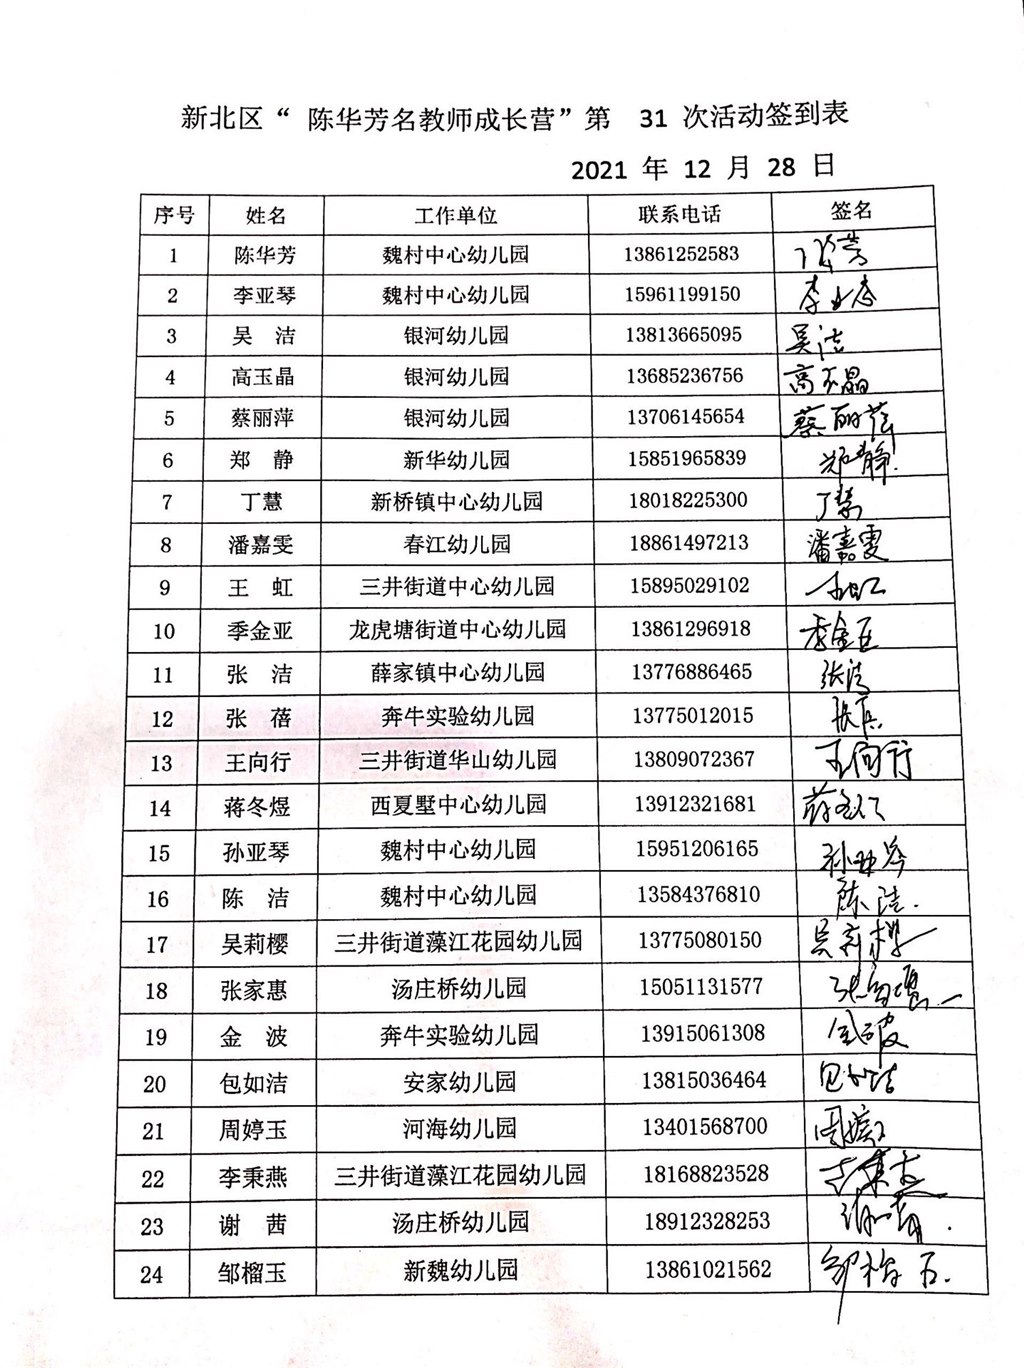 新北区“ 陈华芳名教师成长营”第 31 次活动签到表
2021 年 12 月 28 日
序号 姓名 工作单位 联系电话 签名
1 陈华芳 魏村中心幼儿园 13861252583
2 李亚琴 魏村中心幼儿园 15961199150
3 吴 洁 银河幼儿园 13813665095 吴洁
4 高玉晶 银河幼儿园 13685236756 高玉晶
5 蔡丽萍 银河幼儿园 13706145654 蔡丽萍
6 郑 静 新华幼儿园 15851965839 郑静
7 丁慧 新桥镇中心幼儿园 18018225300 丁慧
8 潘嘉雯 春江幼儿园 18861497213 潘嘉雯
9 王 虹 三井街道中心幼儿园 15895029102 王虹
10 季金亚 龙虎塘街道中心幼儿园 13861296918 季金亚
11 张 洁 薛家镇中心幼儿园 13776886465 张洁
12 张 蓓 奔牛实验幼儿园 13775012015
13 王向行 三井街道华山幼儿园 13809072367 王向行
14 蒋冬煜 西夏墅中心幼儿园 13912321681
15 孙亚琴 魏村中心幼儿园 15951206165 孙亚琴
16 陈 洁 魏村中心幼儿园 13584376810 陈洁.
17 吴莉樱 三井街道藻江花园幼儿园 13775080150 吴莉樱
18 张家惠 汤庄桥幼儿园 15051131577 张家惠
19 金 波 奔牛实验幼儿园 13915061308 金波
20 包如洁 安家幼儿园 13815036464 包如洁
21 周婷玉 河海幼儿园 13401568700
22 李秉燕 三井街道藻江花园幼儿园 18168823528
23 谢 茜 汤庄桥幼儿园 18912328253
24 邹榴玉 新魏幼儿园 13861021562 邹榴玉.